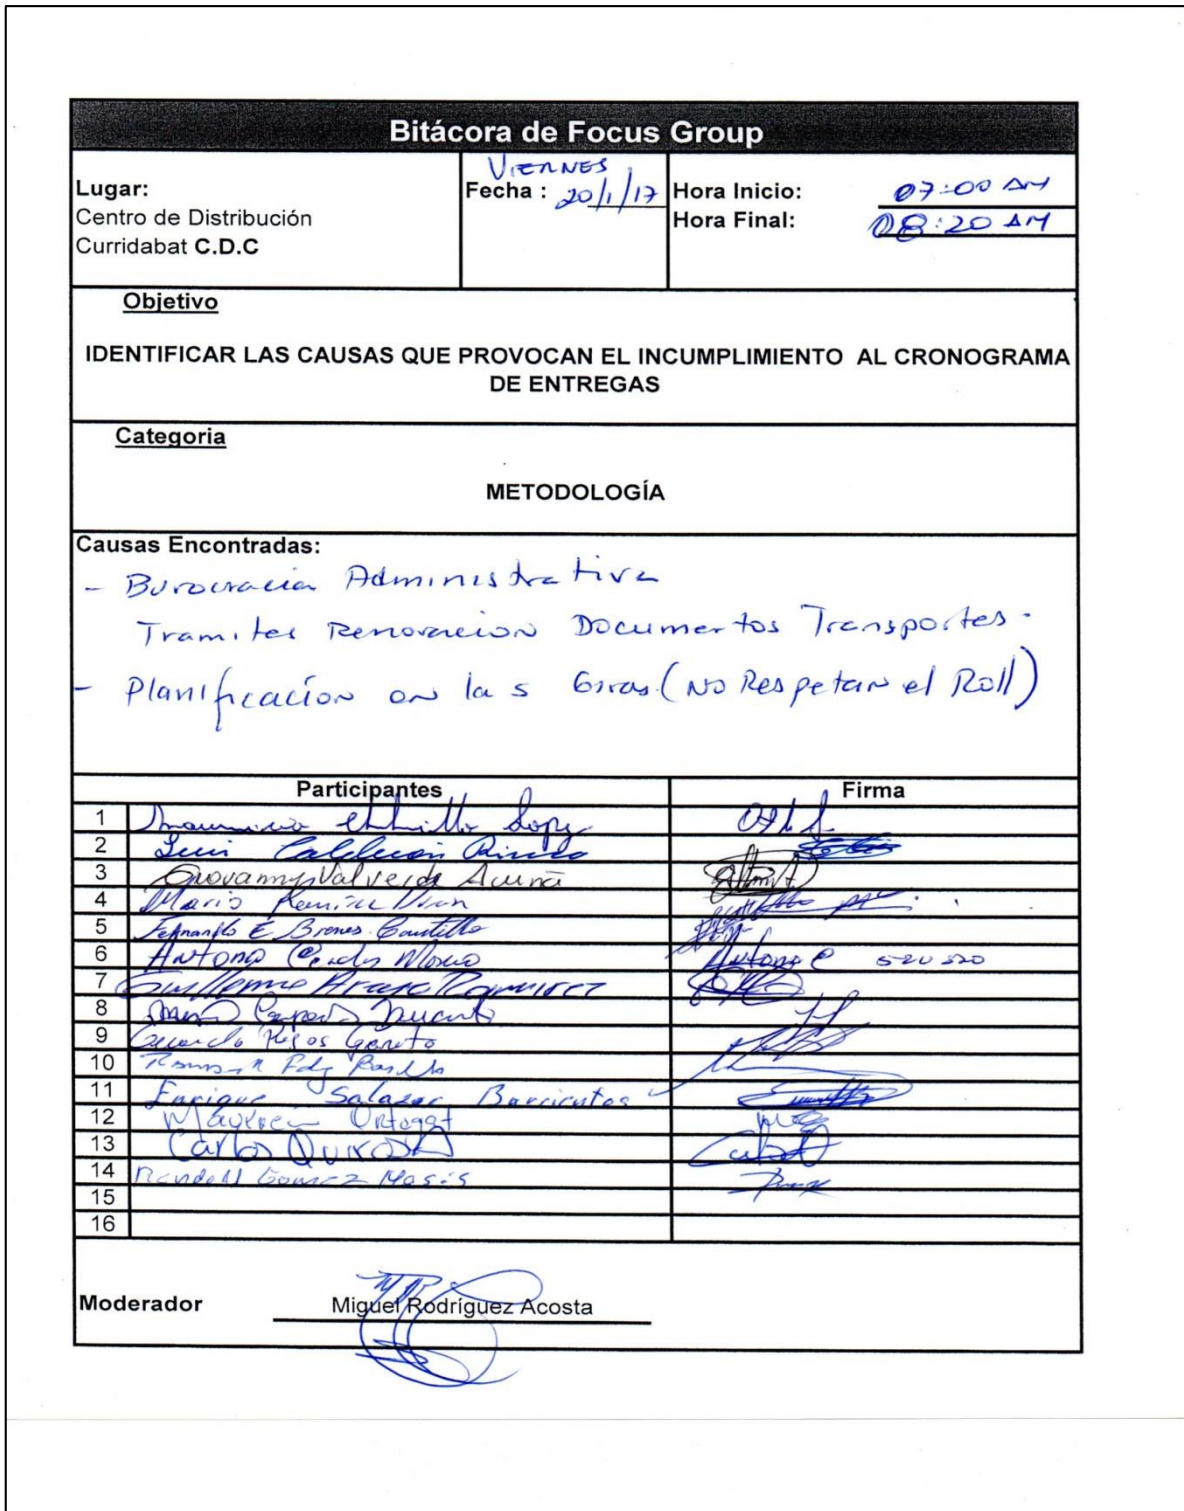 Bitácora de Focus Group
Lugar:
Centro de Distribución
Curridabat C.D.C
VIERNES
Fecha : 20/1/17
Hora Inicio: 07:00 AM
Hora Final: 08:20 AM
Objetivo
IDENTIFICAR LAS CAUSAS QUE PROVOCAN EL INCUMPLIMIENTO AL CRONOGRAMA
DE ENTREGAS
Categoria
METODOLOGÍA
Causas Encontradas:
- Burocracia Administrativa
Tramites Renovacion Documentos Transportes.
- Planificación en las Giras (No Respetan el Roll)
Participantes Firma
1
2 Calderón
3 Giovanny Valverde Acuña
4 Mario
5 Fernando E Brenes
6 Antonio Antonio C
7 Guillermo Araya Ramirez
8
9
10
11 Enrique Salazar Barrientos
12
13 Carlos Quiros
14 Randall Gomez Masis
15
16
Moderador Miguel Rodríguez Acosta